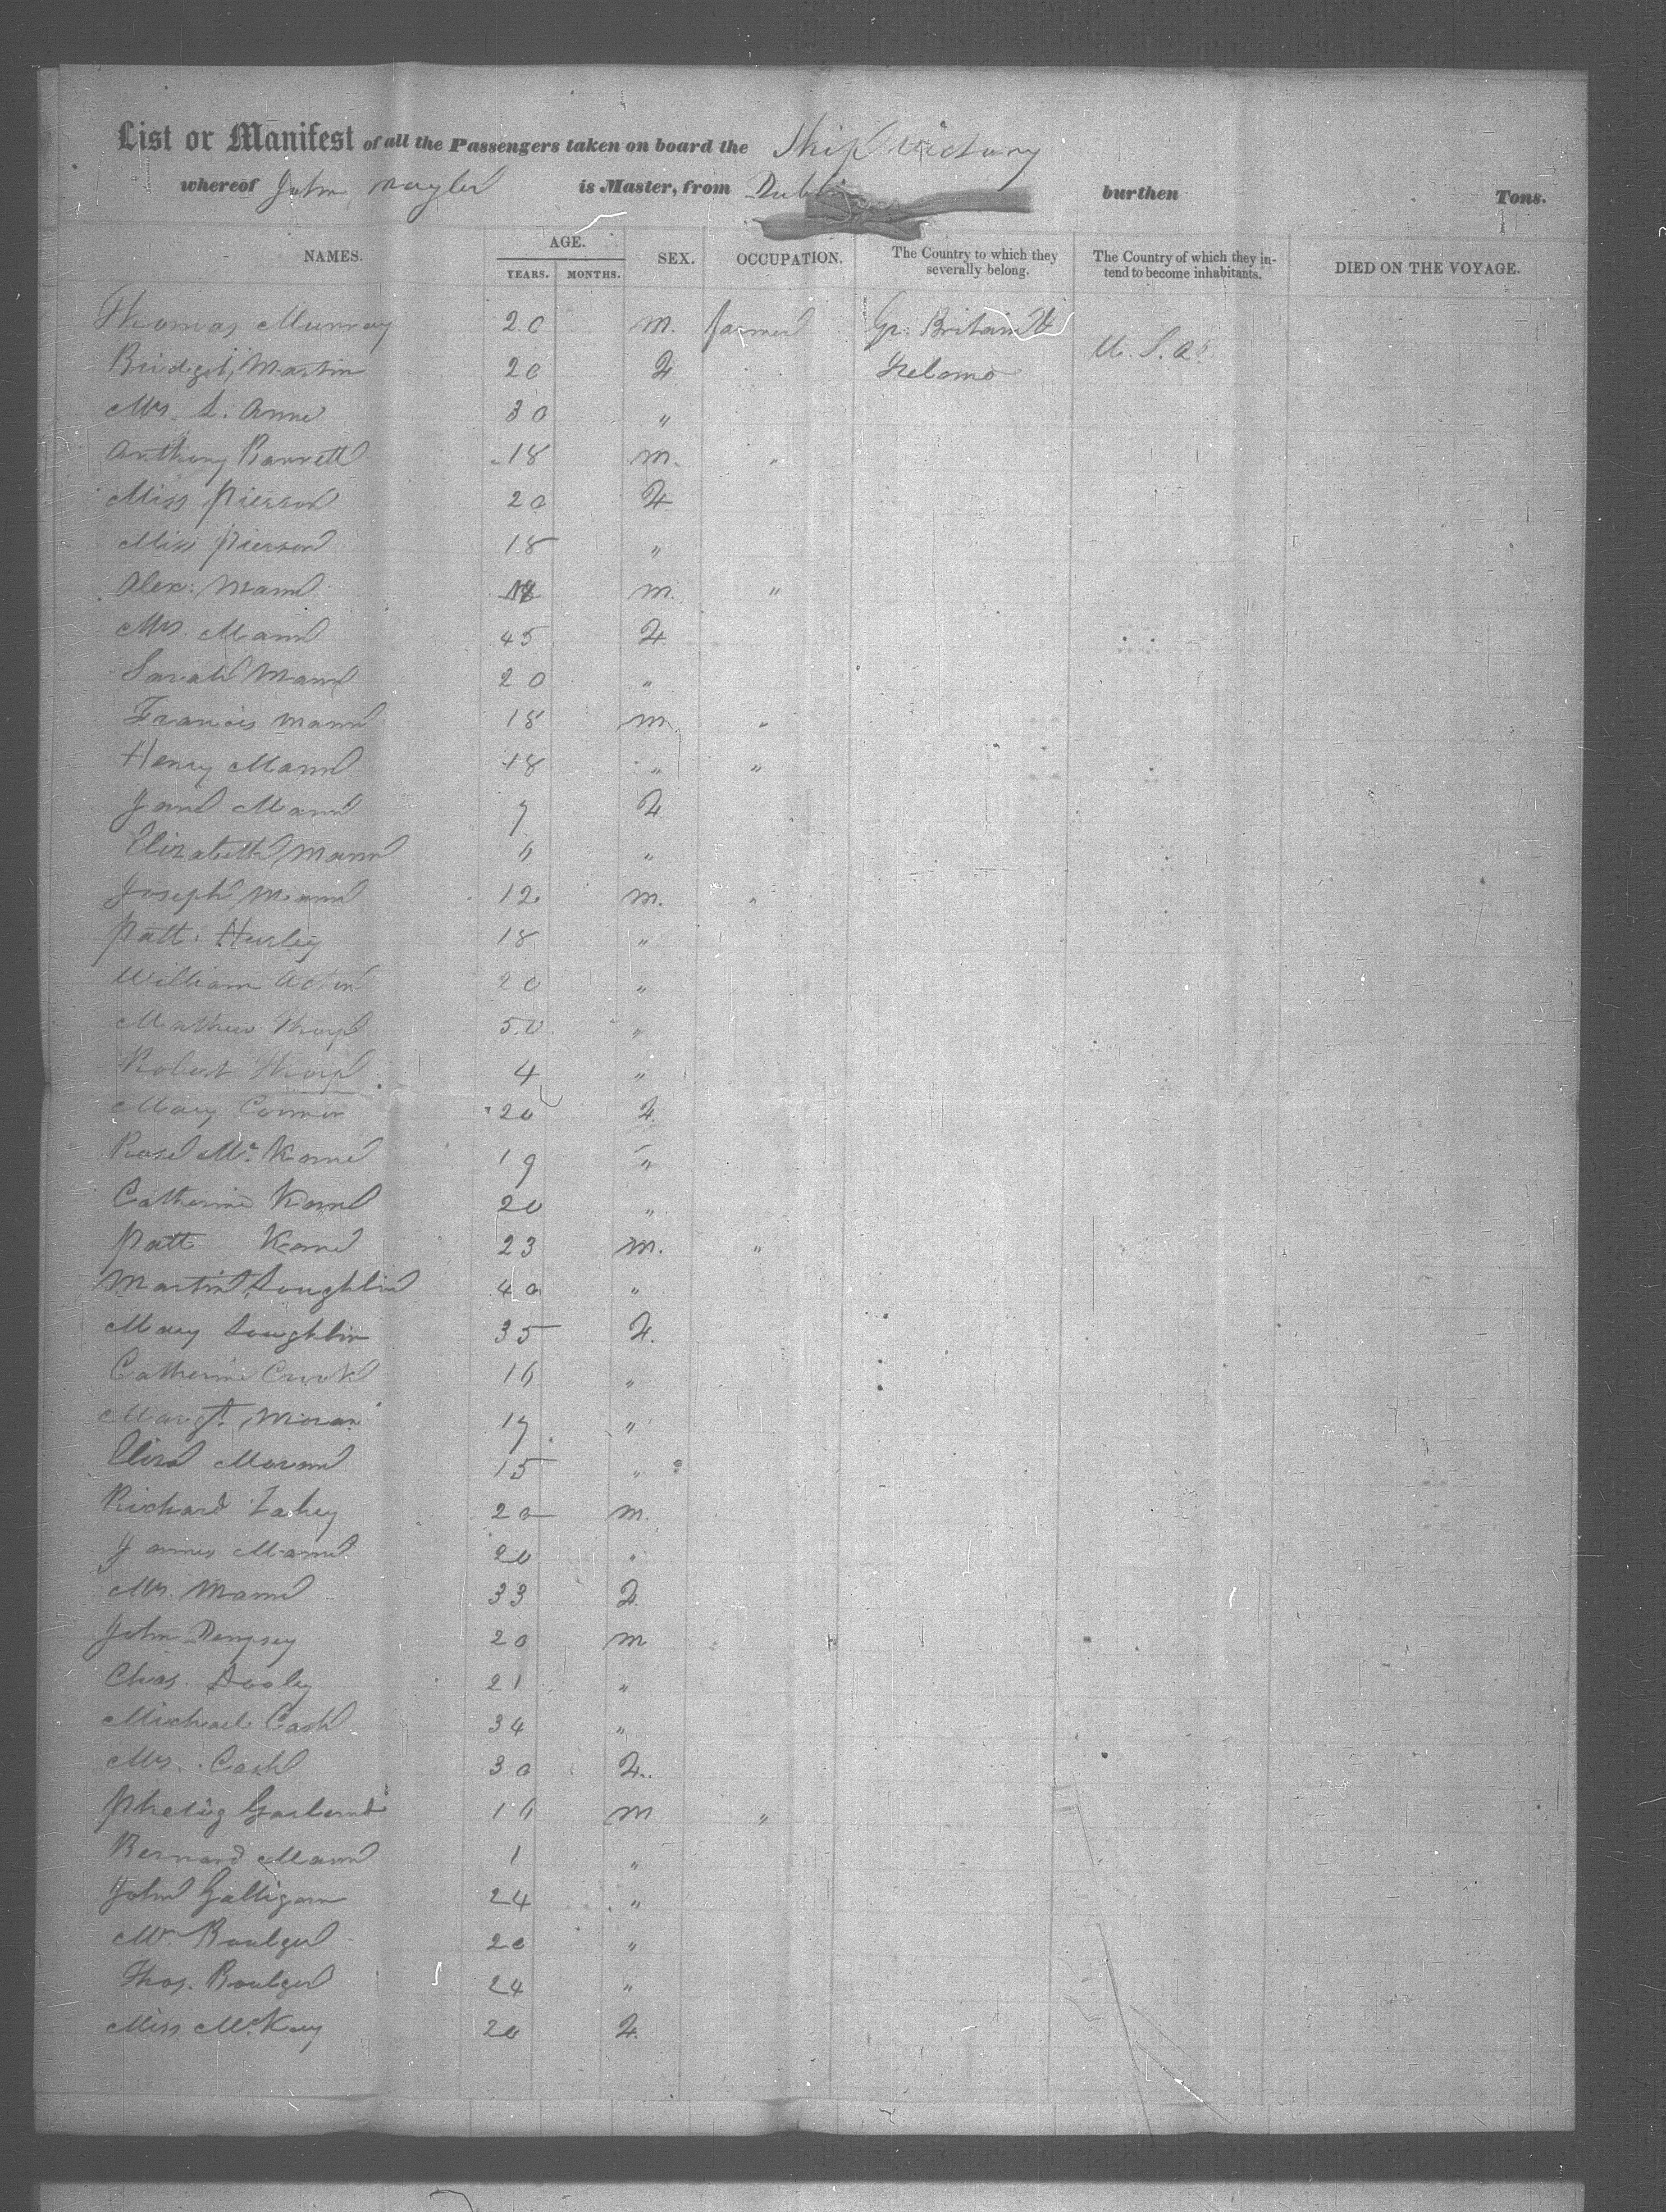 List or Manifest of all the Passengers taken on board the Ship Victory
whereof John Nayler is Master, from Dublin burthen Tons.
NAMES. AGE. YEARS. MONTHS. SEX. OCCUPATION. The Country to which they severally belong. The Country of which they intend to become inhabitants. DIED ON THE VOYAGE.
Thomas Murray 20 M. farmer Gr. Britain &
Bridget Martin 20 F Ireland U. S. A.
Mrs. S. Anne 30 "
Anthony Barrett 18 M. "
Miss Pierson 20 F
Miss Pierson 18 "
Alex: Mann M. "
Mrs. Mann 45 F.
Sarah Mann 20 "
Francis Mann 18 M. "
Henry Mann 18 " "
Jane Mann 7 F.
Elizabeth Mann 6 "
Joseph Mann 12 M. "
Patt. Hurley 18 "
William 20 "
Mathew Thorp 50 "
Robert Thorp 4 "
Mary Connor 20 F.
Rose Mc. Kane 19 "
Catherine Kane 20 "
Patt Kane 23 M. "
Martin Loughlin 40 "
Mary Loughlin 35 F.
Catherine 16 "
Margt. Moran 17 "
Eliza Moran 15 "
Richard Fahey 20 M.
James Mann 20 "
Mrs. Mann 33 F.
John Dempsey 20 M
Chas. Dooley 21 "
Michael Cash 34 "
Mrs. Cash 30 F.
Garland 16 M "
Bernard Mann 1 "
John Galligan 24 "
Mr. Boulger 20 "
Thos. Boulger 24 "
Miss McKay 20 F.